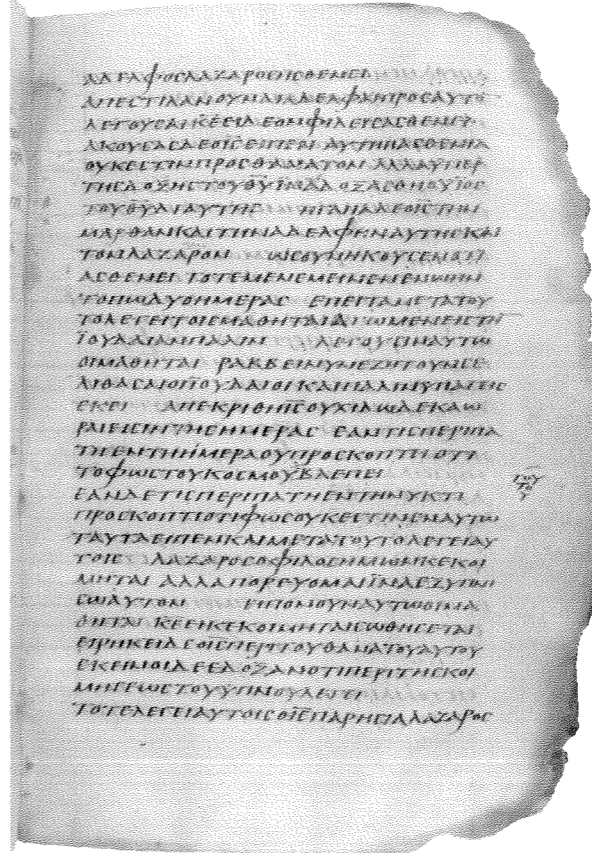 ΑΔΕΛΦΟΣΛΑΖΑΡΟΣΗΣΘΕΝΕΙ
ΑΠΕΣΤΙΛΑΝΟΥΝΑΙΑΔΕΛΦΑΙΠΡΟΣΑΥΤΟ̅
ΛΕΓΟΥΣΑΙ Κ̅Ε̅ΕΙΔΕΟΝΦΙΛΕΙΣΑΣΘΕΝΕΙ
ΑΚΟΥΣΑΣΔΕΟΙ̅Σ̅ΕΙΠΕΝ ΑΥΤΗΗΑΣΘΕΝΙΑ
ΟΥΚΕΣΤΙΝΠΡΟΣΘΑΝΑΤΟΝ ΑΛΛΑΥΠΕΡ
ΤΗΣΔΟΞΗΣΤΟΥΘ̅Υ̅ΪΝΑΔΟΞΑΣΘΗΟΥΪΟΣ
ΤΟΥΘ̅Υ̅ΔΙΑΥΤΗΣ ΗΓΑΠΑΔΕΟΙ̅Σ̅ΤΗΝ
ΜΑΡΘΑΝΚΑΙΤΗΝΑΔΕΛΦΗΝΑΥΤΗΣΚΑΙ
ΤΟΝΛΑΖΑΡΟΝ ΩΣΟΥΝΗΚΟΥΣΕΝΟΤΙ
ΑΣΘΕΝΕΙ ΤΟΤΕΜΕΝΕΜΕΙΝΕΝΕΝΩΗΝ
ΤΟΠΩΔΥΟΗΜΕΡΑΣ ΕΠΕΙΤΑΜΕΤΑΤΟΥ
ΤΟΛΕΓΕΙΤΟΙΣΜΑΘΗΤΑΙΑΓΩΜΕΝΕΙΣΤΗ̅
ΪΟΥΔΑΙΑΝΠΑΛΙΝ ΛΕΓΟΥΣΙΝΑΥΤΩ
ΟΙΜΑΘΗΤΑΙ ΡΑΒΒΕΙΝΥΝΕΖΗΤΟΥΝΣΕ
ΛΙΘΑΣΑΙΟΙΪΟΥΔΑΙΟΙΚΑΙΠΑΛΙΝΥΠΑΓΙΣ
ΕΚΕΙ ΑΠΕΚΡΙΘΗΙ̅Σ̅ΟΥΧΙΔΩΔΕΚΑΩ
ΡΑΙΕΙΣΙΝΤΗΣΗΜΕΡΑΣ ΕΑΝΤΙΣΠΕΡΙΠΑ
ΤΗΕΝΤΗΗΜΕΡΑΟΥΠΡΟΣΚΟΠΤΙΟΤΙ
ΤΟΦΩΣΤΟΥΚΟΣΜΟΥΒΛΕΠΕΙ
ΤΟΥ
ΤΟ
Υ
ΕΑΝΔΕΤΙΣΠΕΡΙΠΑΤΗΕΝΤΗΝΥΚΤΙ
ΠΡΟΣΚΟΠΤΙΟΤΙΦΩΣΟΥΚΕΣΤΙΝΕΝΑΥΤΩ
ΤΑΥΤΑΕΙΠΕΝΚΑΙΜΕΤΑΤΟΥΤΟΛΕΓΕΙΑΥ
ΤΟΙΣ ΛΑΖΑΡΟΣΟΦΙΛΟΣΗΜΩΝΚΕΚΟΙ
ΜΗΤΑΙ ΑΛΛΑΠΟΡΕΥΟΜΑΙΪΝΑΕΞΥΠΝΙ
ΣΩΑΥΤΟΝ ΕΙΠΟΝΟΥΝΑΥΤΩΟΙΜΑ
ΘΗΤΑΙ Κ̅Ε̅ΕΙΚΕΚΟΙΜΗΤΑΙΣΩΘΗΣΕΤΑΙ
ΕΙΡΗΚΕΙΔΕΟΙ̅Σ̅ΠΕΡΙΤΟΥΘΑΝΑΤΟΥΑΥΤΟΥ
ΕΚΕΙΝΟΙΔΕΕΔΟΞΑΝΟΤΙΠΕΡΙΤΗΣΚΟΙ
ΜΗΣΕΩΣΤΟΥΥΠΝΟΥΛΕΓΕΙ
ΤΟΤΕΛΕΓΕΙΑΥΤΟΙΣΟΙ̅Σ̅ΠΑΡΗΣΙΑΛΑΖΑΡΟΣ